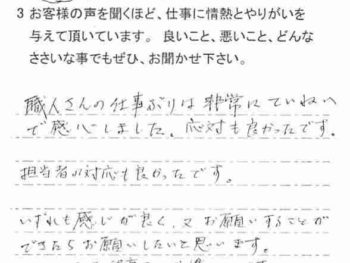 3 お客様の声を聞くほど、仕事に情熱とやりがいを
与えて頂いています。 良いこと、悪いこと、どんな
ささいな事でもぜひ、お聞かせ下さい。
職人さんの仕事ぶりは非常にていねい
で感心しました。応対も良かったです。
担当者の対応も良かったです。
いずれも感じが良く、又お願いすることが
できたらお願いしたいと思います。